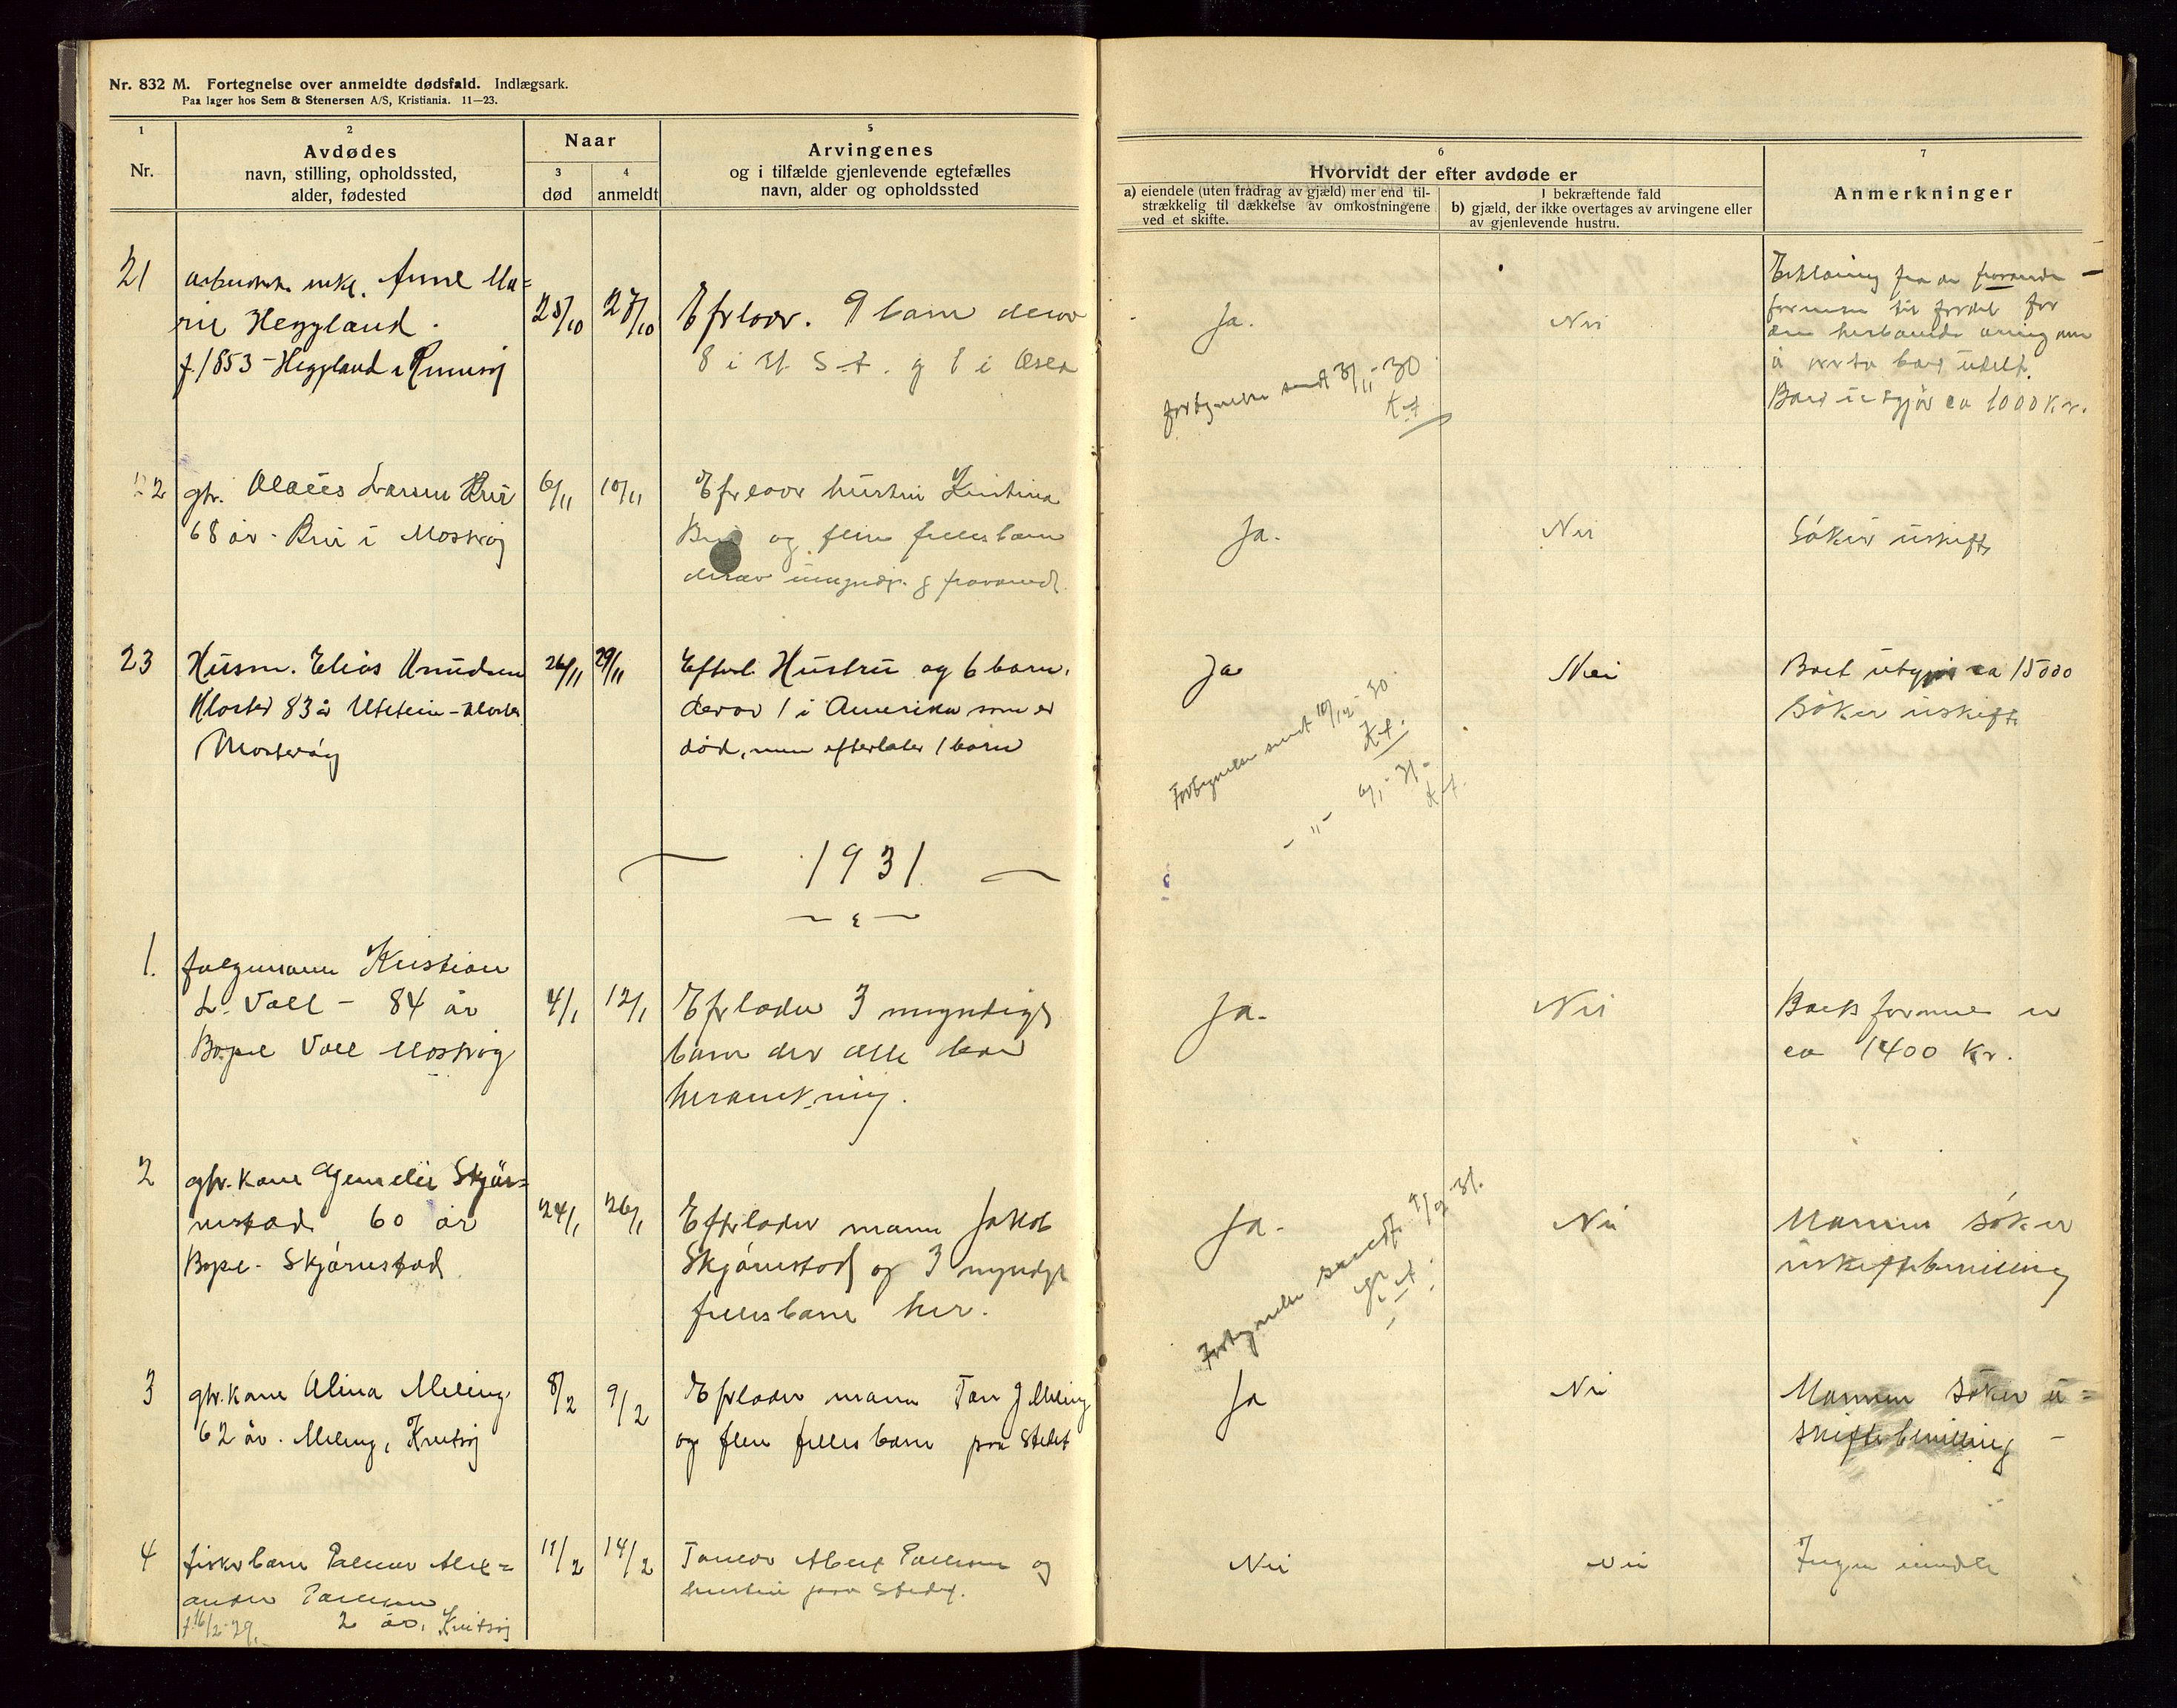 Nr. 832 M. Fortegnelse over anmeldte dødsfald. Indlægsark.
Paa lager hos Sem & Stenersen A/S, Kristiania. 11—23.
1
Nr.
2
Avdødes
navn, stilling, opholdssted,
alder, fødested
Naar
3
død
4
anmeldt
5
Arvingenes
og i tilfælde gjenlevende egtefælles
navn, alder og opholdssted
6
Hvorvidt der efter avdøde er
a) eiendele (uten fradrag av gjæld) mer end til-
strækkelig til dækkelse av omkostningene
ved et skifte.
I bekræftende fald
b) gjæld, der ikke overtages av arvingene eller
av gjenlevende hustru.
7
Anmerkninger
21
enke. Anne Ma=
rie Heggland.
f. 1853 - Heggland i Rennesøy
25/10
27/10
Efterlader. 9 barn derav
8 i U. S. A. og 1 i
Ja.
Nei
fortegnelse sendt 3/11-30
Erklæring fra de
formenn til fordel for
den
å boet utdelt.
Boet utgjør ca 1000 Kr.
22
gbr. Olaus Larsen Bru
68 år - Bru i Mosterøy
6/11
10/11
Efterlader hustru Kristina
Bru og flere fellesbarn
derav og fraværende
Ja.
Nei
Søker uskifte
23
Husm. Elias Knudsen
Kloster 83 år Utstein-Kloster
Mosterøy
26/11
29/11
Efterl. Hustru og 6 barn.
derav 1 i Amerika som er
død, men efterlater 1 barn
Ja
Nei
Fortegnelse sendt 10/12-30.
— " — 6/1-31-
Boet utgjør ca 15000
Søker uskifte
1931
1.
følgemann Kristian
L. Voll - 84 år
Bopel Voll Mosterøy
4/1
12/1
Efterlader 3 myndige
barn der alle bor
her
Ja.
Nei
Boets formue er
ca 1400 Kr.
2
gbr. kone Skjør=
nestad 60 år
Bopel - Skjørnestad
24/1
26/1
Efterlader mann Jakob
Skjørnestad og 3 myndige
fellesbarn her.
Ja.
Nei
Fortegnelse sendt 9/2 31.
Mannen søker
uskiftebevilling
3
gbr. kone Alina Meling
62 år. Meling, Kvitsøy
8/2
9/2
Efterlader mann Tore J Meling
og flere felles barn paa stedet
Ja
Nei
Mannen søker u=
skiftebevilling -
4
fiskerbarn Palmer Alex=
ander
f. 16/2-29. 2 år, Kvitsøy
11/2
14/2
og
hustru paa stedet.
Nei
Nei
Ingen eiendele